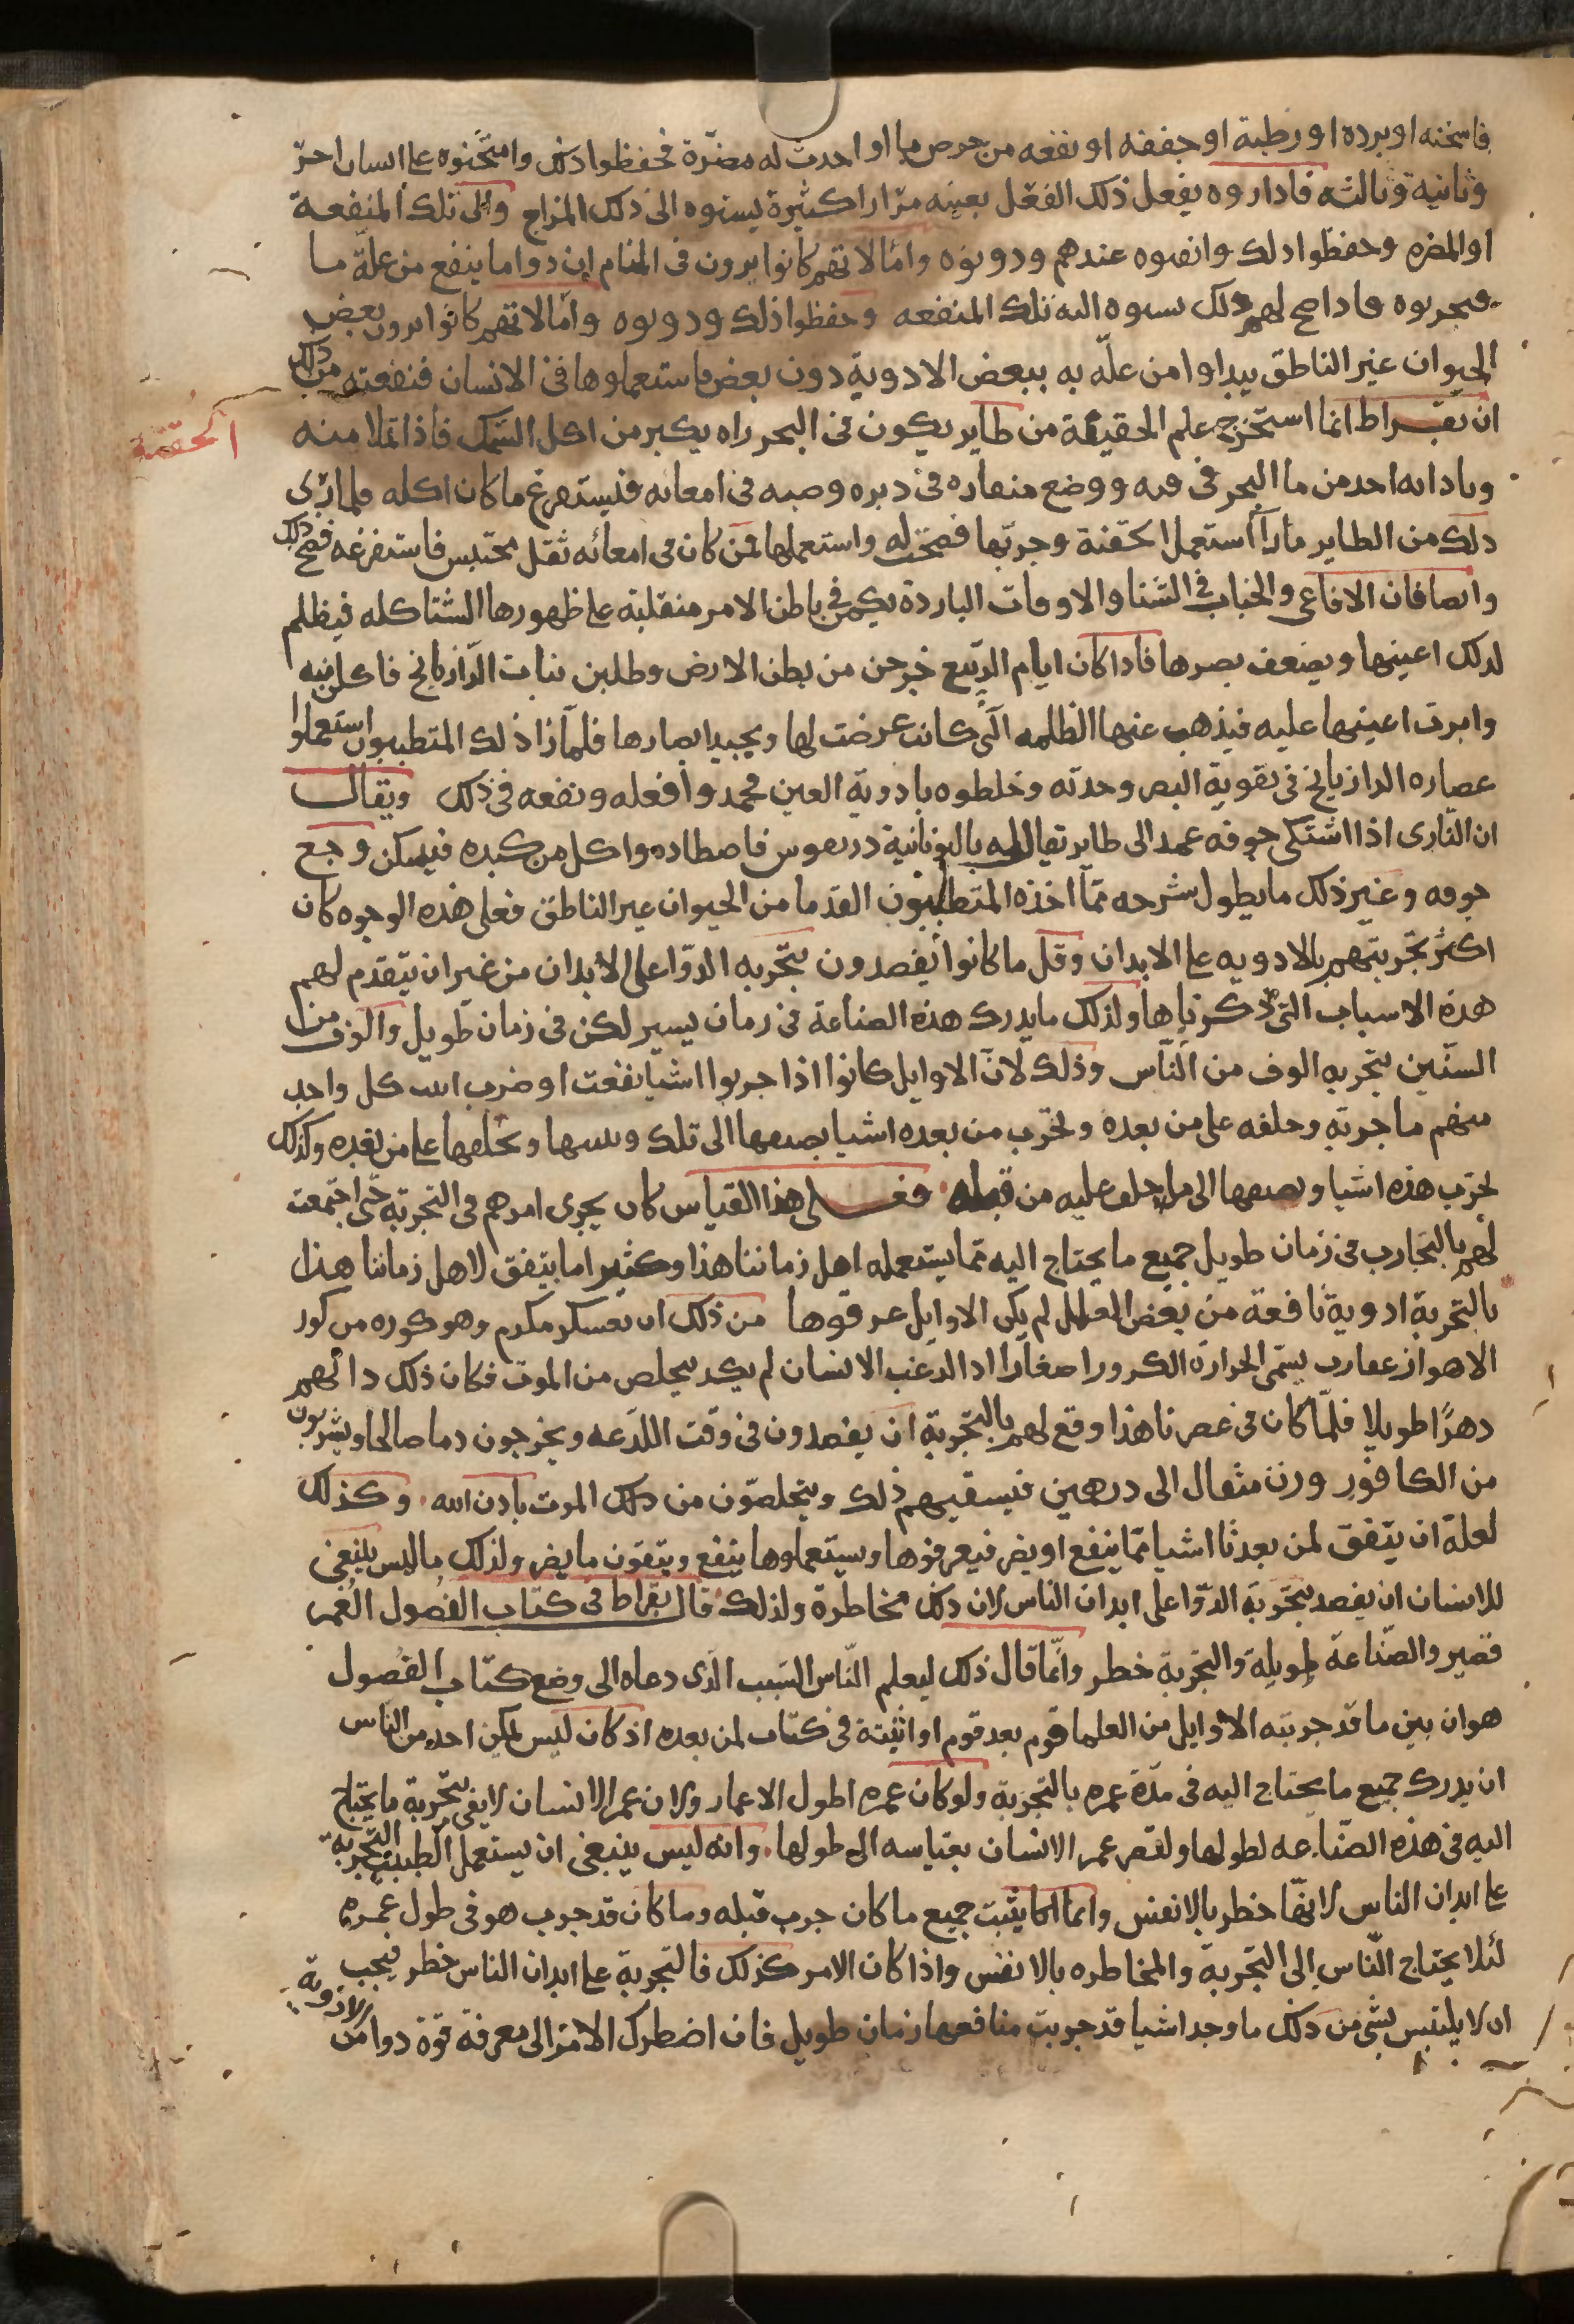 فاسخنه او برده او رطبة او جففه او نفعه من مرض ما او احدث له مضرة فحفظوا ذلك وامتحنوه على انسان اخر
وثانية وثالثه فاداروه يفعل ذلك الفعل بعينه مرارا كثيرة نسبوه الى ذلك المزاج والى تلك المنفعة
او المضره وحفظوا دلك عندهم ودونوه واما لانهم كانوا يرون فى المنام ان دوا ما ينفع من علة ما
فيجربوه فاداصح لهم ذلك نسبوه اليه تلك المنفعه وحفظوا ذلك ودونوه واما لانهم كانوا يرون بعض
الحيوان غير الناطق يبداوا من علّه به ببعض الادوية دون بعض فاستعملوها فى الانسان فنفعته من ذلك
ان بقراط انما استخرج علم الحقيقة من طاير يكون فى البحر راه يكبر من اكل السمك فاذا تملا منه
وتاذا به اخد من ما البحر فى فمه ووضع منقاره فى دبره وصبه فى امعائه فيستفرغ ما كان اكله فلما راى
دلك من الطاير مرارا استعمل الحقنة وجربها فصحت له واستعملها لمن كان فى امعائه ثقل محتبس فاستفرغه فصح ذلك
الحقنة
وايضا فان الافاعى والحيات فى الشتا والاوقات الباردة يكمن فى باطن الارض منقلبة على ظهورها الشتا كله فيظلم
لدلك اعينها ويضعف بصرها فاداكان ايام الربيع خرجن من بطن الارض وطلبن نبات الرازيانج فاكلن منه
وامرت اعينها عليه فيذهب عنها الظلمه التى كانت عرضت لها ويجيد ابصارها فلما راا ذلك المتطببون استعملوا
عصاره الرازيانج فى تقوية البصر وحدته وخلطوه بادوية العين فحمدوا فعله ونفعه فى ذلك ويقال
ان البازى اذا اشتكى جوفه عمد الى طاير يقال له باليونانية فاصطاده واكل من كبده فيسكن وجع
جوفه وغير ذلك ما يطول شرحه مما اخذه المتطببون القدما من الحيوان غير الناطق فعلى هذه الوجوه كان
اكثر تجربتهم بالادويه على الابدان وقل ما كانوا يقصدون بتجربه الدوا على الابدان من غير ان يتقدم لهم
هذه الاسباب التى ذكرناها ولذلك ما يدرك هذه الصناعة فى زمان يسير لكن فى زمان طويل والوف من
السنين بتجربه الوف من الناس وذلك لان الاوايل كانوا اذا جربوا اشيا نفعت او ضرت اثبت كل واحد
منهم ما جربه وخلفه على من بعده ويجرب من بعده اشيا يضيفها الى تلك ويثبتها ويخلفها على من بعده وكذلك
يجرب هذه اشيا ويضيفها الى ما خلف عليه من قبله فعلى هذا القياس كان يجرى امرهم فى التجربة حتى اجتمعت
لهم بالتجارب فى زمان طويل جميع ما يحتاج اليه مما يستعمله اهل زماننا هذا وكثير اما يتفق لاهل زماننا هذا
بالتجربة ادوية نافعة من بعض العلل لم يكن الاوايل عرفوها من ذلك ان بعسكر مكرم وهو كوره من كور
الاهواز عقارب يسمى الجراره الكرورا صغارا اذا لدغت الانسان لم يكد يتخلص من الموت فكان ذلك دائهم
دهرًا طويلا فلما كان فى عصرنا هذا وقع لهم بالتجربة ان يفصدون فى وقت اللدغه ويخرجون دما صالحا ويشربون
من الكافور وزن مثقال الى درهمين فيسقيهم ذلك ويتخلصون من ذلك الموت باذن الله وكذلك
لعلة ان يتفق لمن بعدنا اشيا مما ينفع او يضر فيعرفوها ويستعملوها ينفع ويتقون ما يضر ولذلك ما ليس ينبغى
للانسان ان يقصد بتجربة الدوا على ابدان الناس لان دلك مخاطرة ولذلك قال بقراط فى كتاب الفصول العمر
قصير والصناعة طويلة والتجربة خطر وانما قال ذلك ليعلم الناس السبب الذى دعاه الى وضع كتاب الفصول
هو ان بين ما قد جربته الاوايل من العلما قوم بعد قوم او اثبتة فى كتاب لمن بعده اذ كان ليس يمكن احد من الناس
ان يدرك جميع ما يحتاج اليه فى مدة عمره بالتجربة ولو كان عمره اطول الاعمار ولان عمر الانسان لا يفى بتجربة ما يحتاج
اليه فى هذه الصناعه لطولها ولقصر عمر الانسان بقياسه الى طولها وانه ليس ينبغى ان يستعمل الطبيب التجربة
على ابدان الناس لانها خطر بالانفس وانما يثبت جميع ما كان جرب قبله وما كان قد جرب هو فى طول عمره
لئلا يحتاج الناس الى التجربة والمخاطره بالانفس واذا كان الامر كذلك فالتجربة على ابدان الناس خطر فيجب
ان لا يلتبس بشى من ذلك ما وجد اشيا قد جربت منافعها زمان طويل فان اضطرك الامر الى معرفة قوة دوا من الادوية